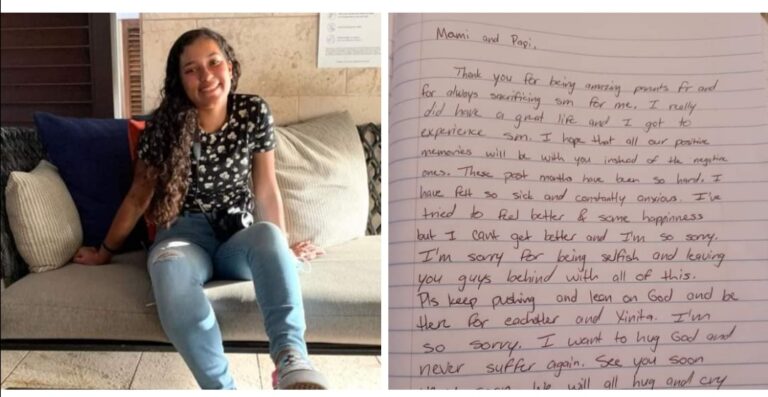 Mami and Papi,
Thank you for being amazing parents fr and
for always sacrificing sm for me. I really
did have a great life and I got to
experience sm. I hope that all our positive
memories will be with you instead of the negative
ones. These past months have been so hard. I
have felt so sick and constantly anxious. I've
tried to feel better & some happinness
but I cant get better and I'm so sorry.
I'm sorry for being selfish and leaving
you guys behind with all of this.
Pls keep pushing and lean on God and be
there for eachother and Xinita. I'm
so sorry. I want to hug God and
never suffer again. See you soon
We will all hug and cry